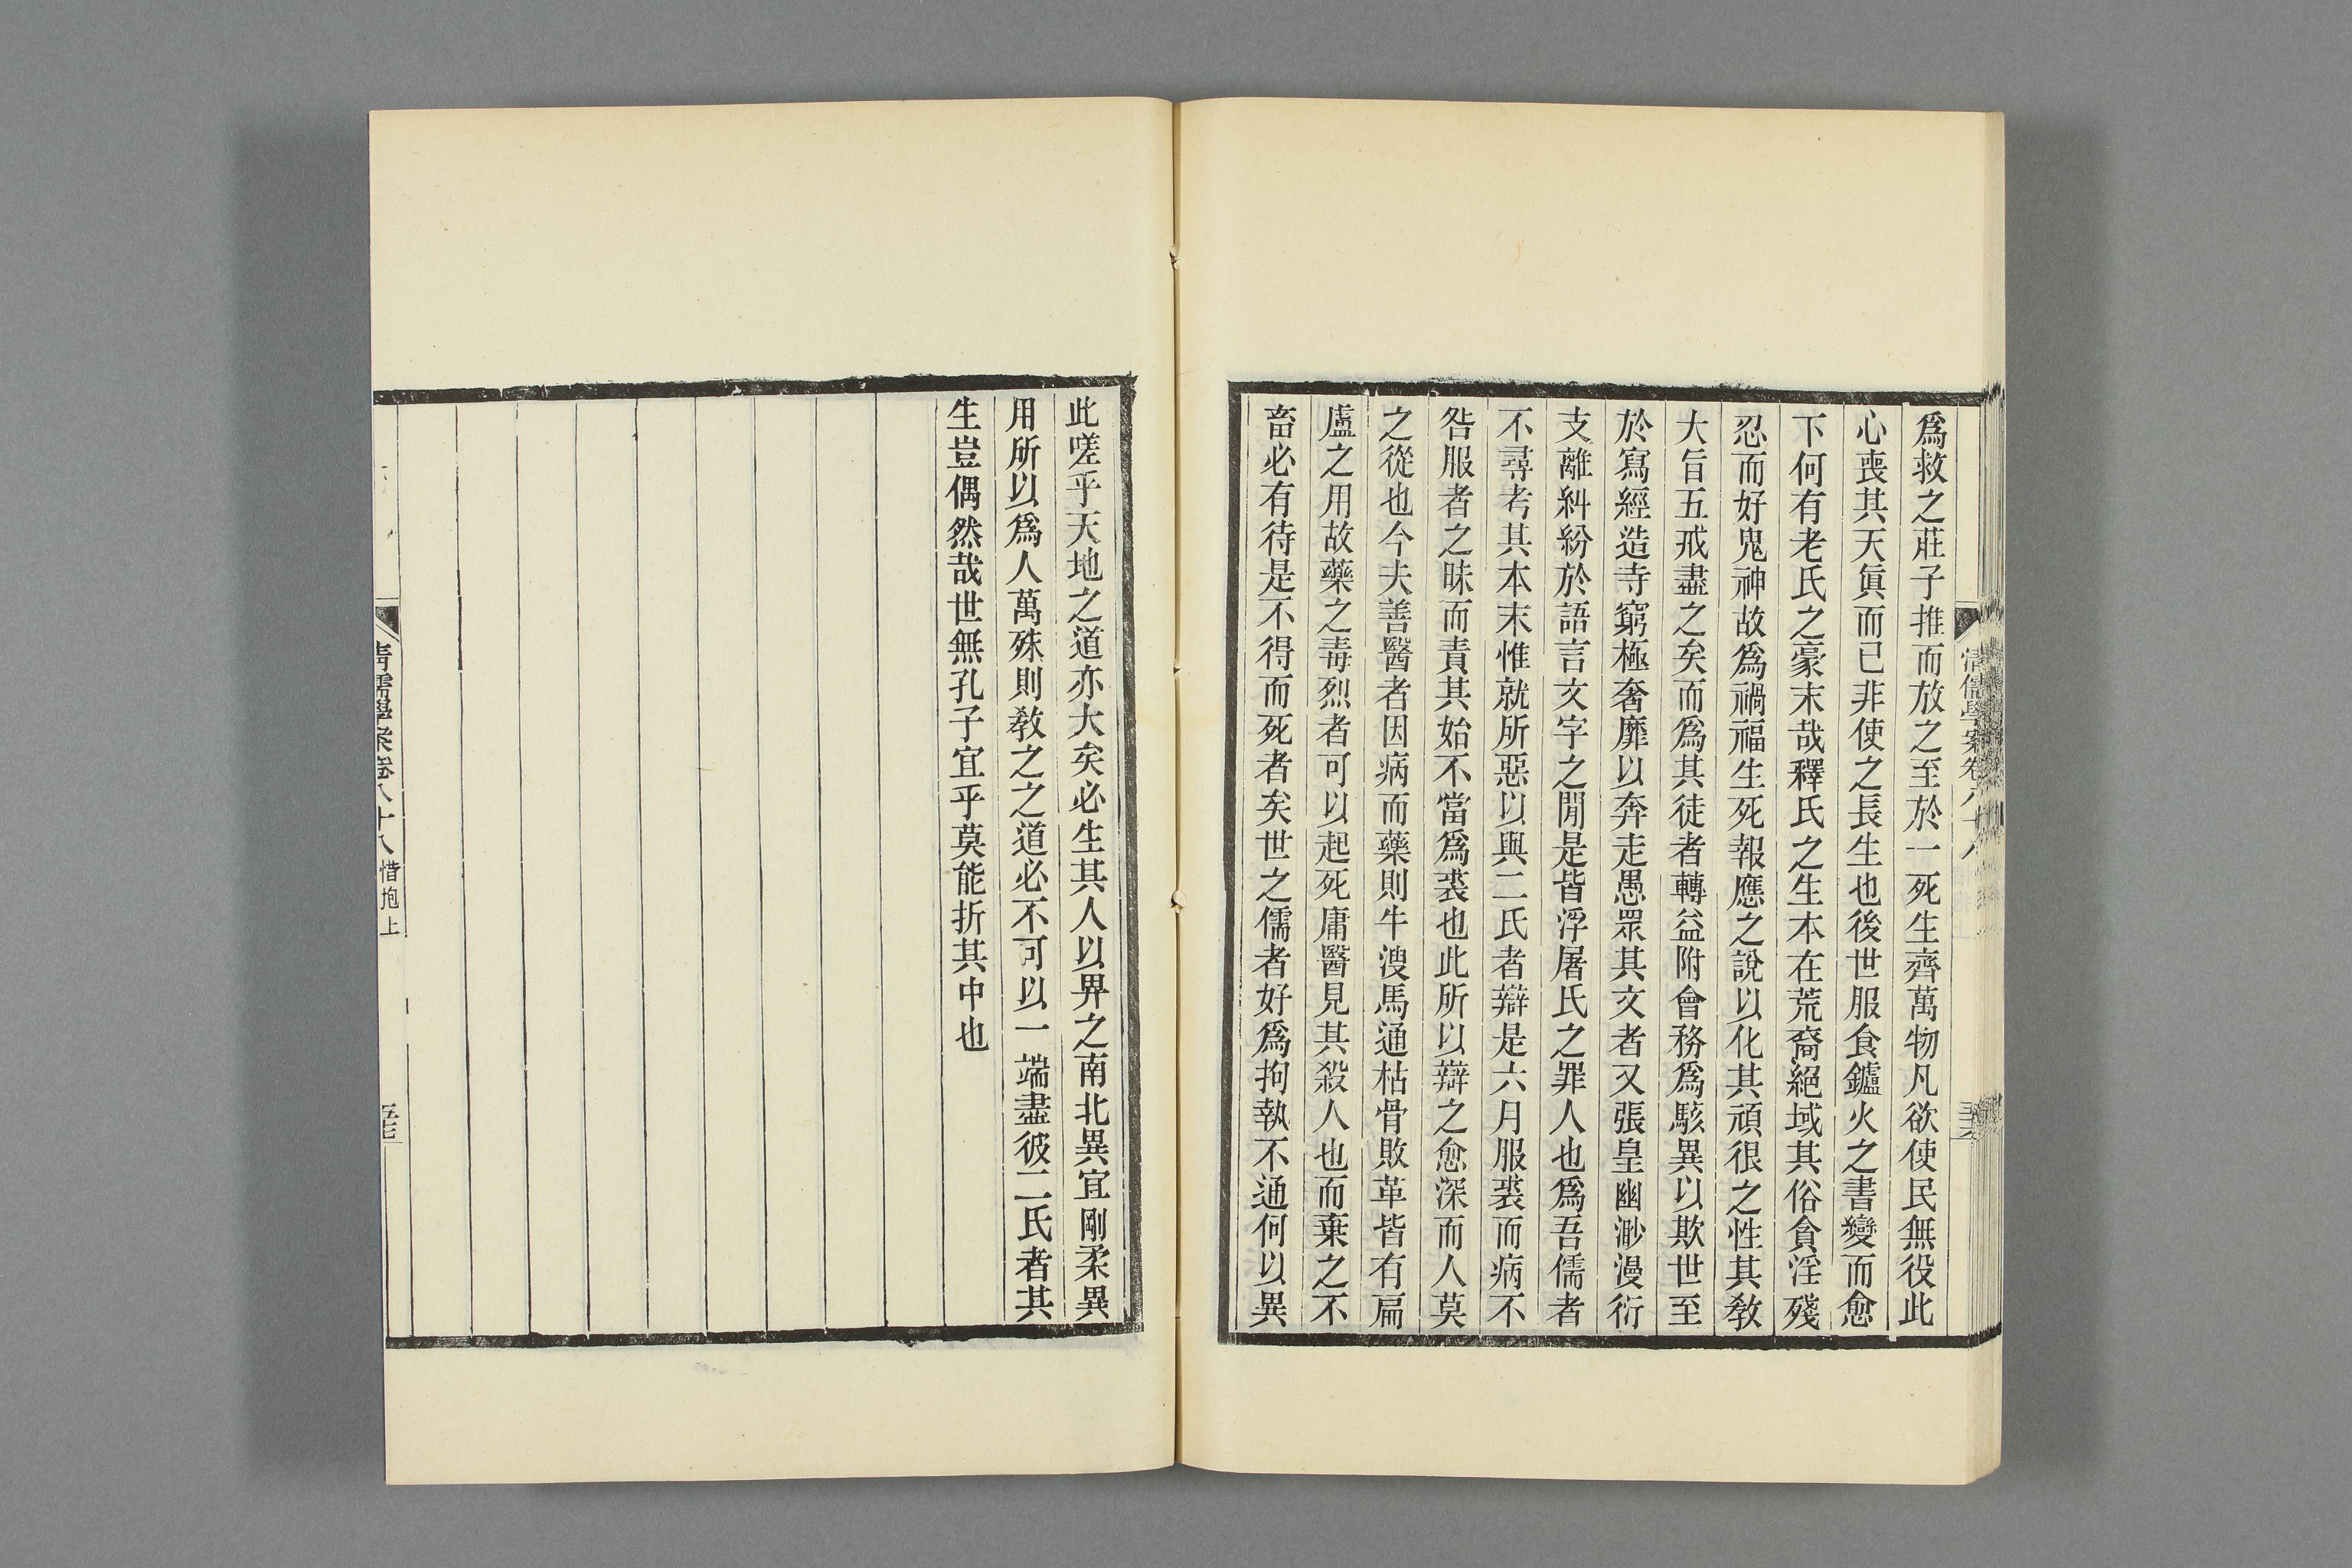 爲救之莊子推而放之至於一死生齊萬物凡欲使民無役此
心喪其天眞而已非使之長生也後世服食鑪火之書變而愈
下何有老氏之豪末哉釋氏之生本在荒裔絕域其俗貪淫殘
忍而好鬼神故爲禍福生死報應之說以化其頑很之性其敎
大旨五戒盡之矣而爲其徒者轉益附會務爲駭異以欺世至
於寫經造寺窮極奢靡以奔走愚眾其文者又張皇幽渺漫衍
支離糾紛於語言文字之閒是皆浮屠氏之罪人也爲吾儒者
不尋考其本末惟就所惡以與二氏者辯是六月服裘而病不
咎服者之昧而責其始不當爲裘也此所以辯之愈深而人莫
之從也今夫善醫者因病而藥則牛溲馬通枯骨敗革皆有扁
盧之用故藥之毒烈者可以起死庸醫見其殺人也而棄之不
畜必有待是不得而死者矣世之儒者好爲拘執不通何以異
此嗟乎天地之道亦大矣必生其人以畀之南北異宜剛柔異
用所以爲人萬殊則敎之之道必不可以一端盡彼二氏者其
生豈偶然哉世無孔子宜乎莫能折其中也
清儒學案卷八十八 惜抱上